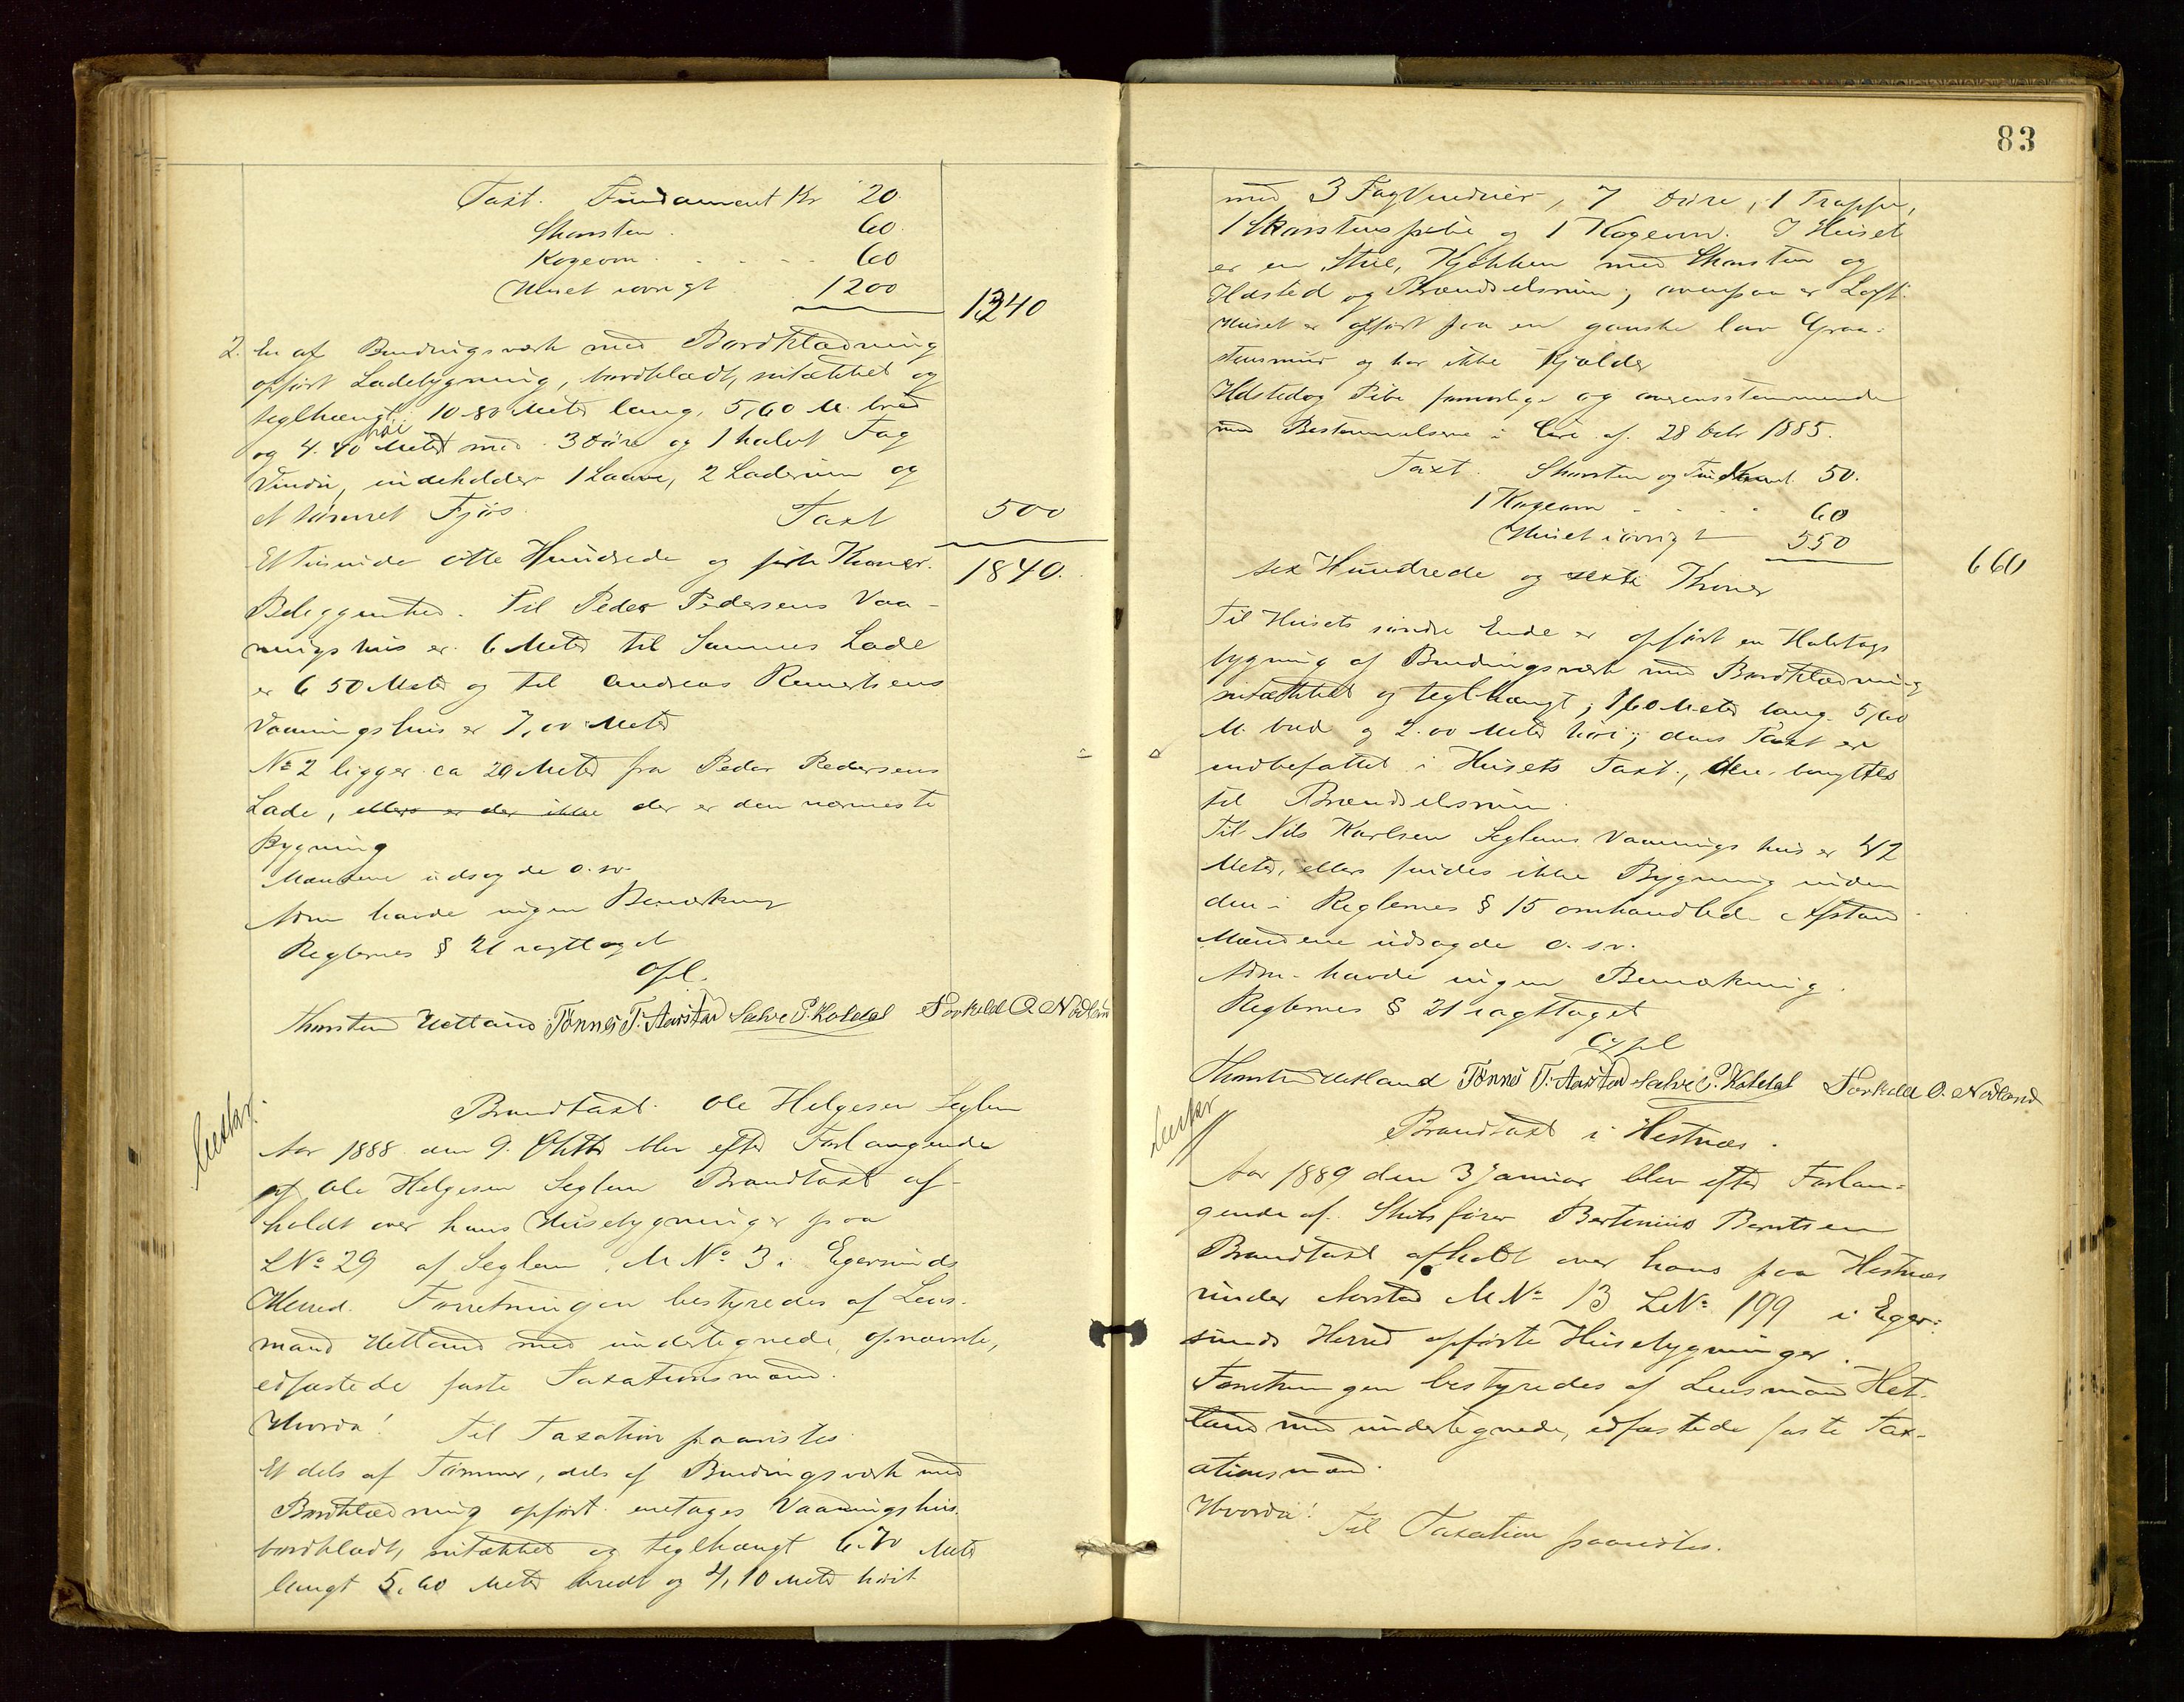 Taxt. Fundament Kr 20.
Skorsten . 60.
Kogeovn . . . . 60
Huset iøvrigt 1200
1340
2. En af Bindingsværk med Bordklædning
opført Ladebygning, bordklædt, nitækket og
teglhængt; 10.80 Meter lang, 5,60 M. bred
og 4.40 Meter høi med 3 Döre og 1 halvt Fag
Vindu, indeholder 1 Laave, 2 Laderum og
et tömret Fjös. Taxt 500
Et tusinde otte Hundrede og førti Kroner. 1840.
Beliggenhed. Til Peder Pedersens Vaa-
ningshus er 6 Meter til Sammes Lade
er 6 50 Meter og til Andreas Reinertsens
Vaaningshus er 7,00 Meter
No 2 ligger ca 29 Meter fra Peder Pedersens
Lade, ellers er der ikke der er den nærmeste
Bygning
Mændene udsagde o. sv.
Adm havde ingen Bemærkning
Reglernes § 21 iagttaget
Opl.
Thorsten Hetland Tönnes T. Aarstad Salve P. Koldal Torkild O. Nødland
Leuskr.
Brandtaxt. Ole Helgesen Seglem
Aar 1888 den 9. Oktbr blev efter Forlangende
af Ole Helgesen Seglem Brandtaxt af-
holdt over hans Husebygninger paa
LNo 29 af Seglem, M No 3 i Egersunds
Herred. Forretningen bestyredes af Lens-
mand Hetland med undertegnede, opnævnte,
edfæstede faste Taxationsmænd.
Hvorda! Til Taxation paavistes
Et dels af Tømmer, dels af Bindingsværk med
Bordklædning opført enetages Vaaningshus.
bordklædt, nitækket og teglhængt 6.70 Meter
langt 5,60 Meter bredt og 4,10 Meter høit
83
med 3 Fag Vinduer, 7 Döre, 1 Trappe,
1 Skorstenspibe og 1 Kogeovn. I Huset
er en Stue, Kjökken med Skorsten og
Ildsted og Brændselsrum; ovenpaa er Loft.
Huset er opført paa en ganske lav Graa-
stensmur og har ikke Kjælder
Ildsted og Pibe forsvarlige og overensstemmende
med Bestemmelserne i Circ. af 28 Febr 1885.
Taxt. Skorsten og Fundament 50.
1 Kogeovn . . . 60
Huset iøvrigt 550
sex Hundrede og sexti Kroner 660
Til Husets søndre Ende er opført en Halvtags
bygning af Bindingsværk med Bordklædning
nitækket og teglhængt; 1,60 Meter lang. 5,60
M. bred og 2.00 Meter høi; dens Taxt er
indbefattet i Husets Taxt., den benyttes
til Brændselsrum.
Til Nils Karlsen Seglems Vaanings hus er 42
Meter, ellers findes ikke Bygning inden
den i Reglernes § 15 omhandlede Afstand
Mændene udsagde o. s.v.
Adm. havde ingen Bemærkning.
Reglernes § 21 iagttaget
Opl
Thorsten Hetland Tönnes T. Aarstad Salve P. Koldal Torkild O. Nødland
Leuskr
Brandtaxt i Hestnæs.
Aar 1889 den 3 Januar blev efter Forlan-
gende af Skibsfører Bertinius Berntsen
Brandtaxt afholdt over hans paa Hestnæs
under Aarstad M No 13 LNo 199 i Eger-
sunds Herred opførte Husebygninger.
Forretningen bestyredes af Lensmand Het-
land med undertegnede, edfæstede faste Tax-
ationsmænd.
Hvorda! Til Taxation paavistes.